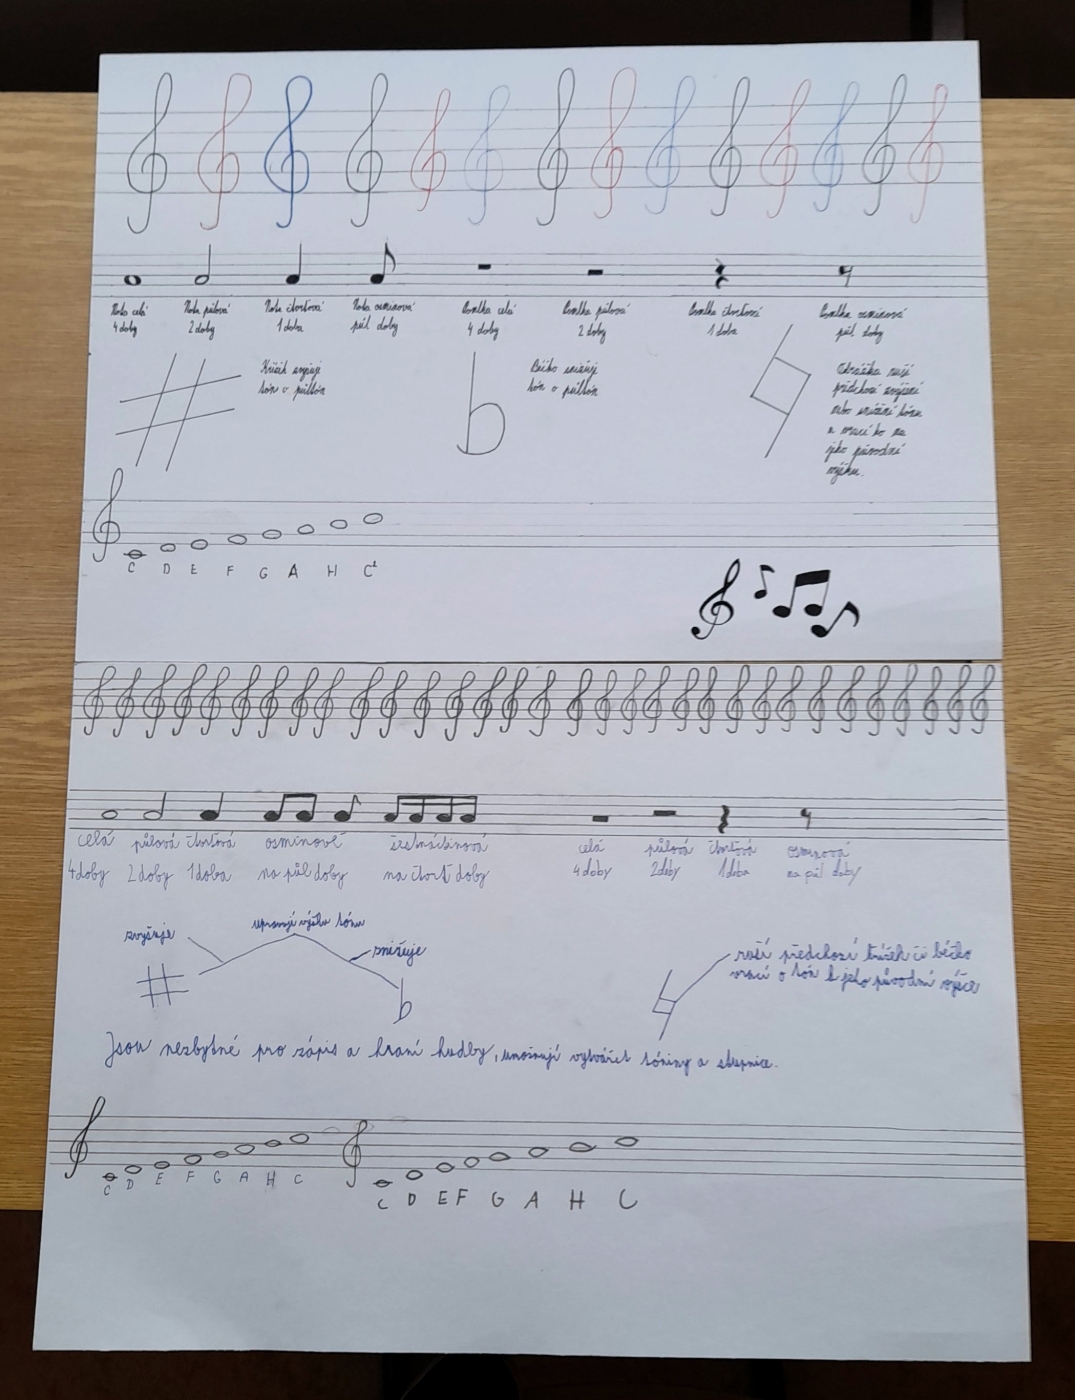 Nota celá Nota půlová Nota čtvrťová Nota osminová Pomlka celá Pomlka půlová Pomlka čtvrťová Pomlka osminová
4 doby 2 doby 1 doba půl doby 4 doby 2 doby 1 doba půl doby
Křížek zvyšuje
tón o půltón
Béčko snižuje
tón o půltón
Odrážka ruší
předchozí zvýšení
nebo snížení tónu
a vrací ho na
jeho původní
výšku.
C D E F G A H C²
celá půlová čtvrťová osminové šestnáctinová celá půlová čtvrťová osminová
4doby 2doby 1doba na půl doby na čtvrt doby 4doby 2doby 1doba na půl doby
upravují výšku tónu
zvyšuje
snižuje
ruší předchozí křížek či béčko
vrací o tón k jeho původní výšce
Jsou nezbytné pro zápis a hraní hudby, umožnují vytvářet tóniny a stupnice.
C D E F G A H C C D E F G A H C